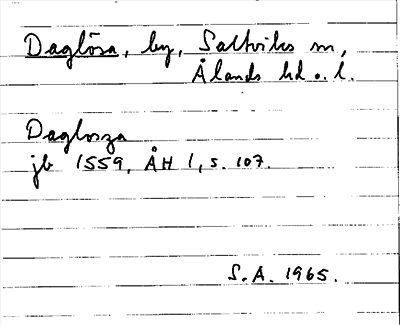 Daglösa, by, Saltviks sn,
Ålands hd o. l.
Daglosza
jb 1559, ÅH 1, s. 107.
S.A. 1965.